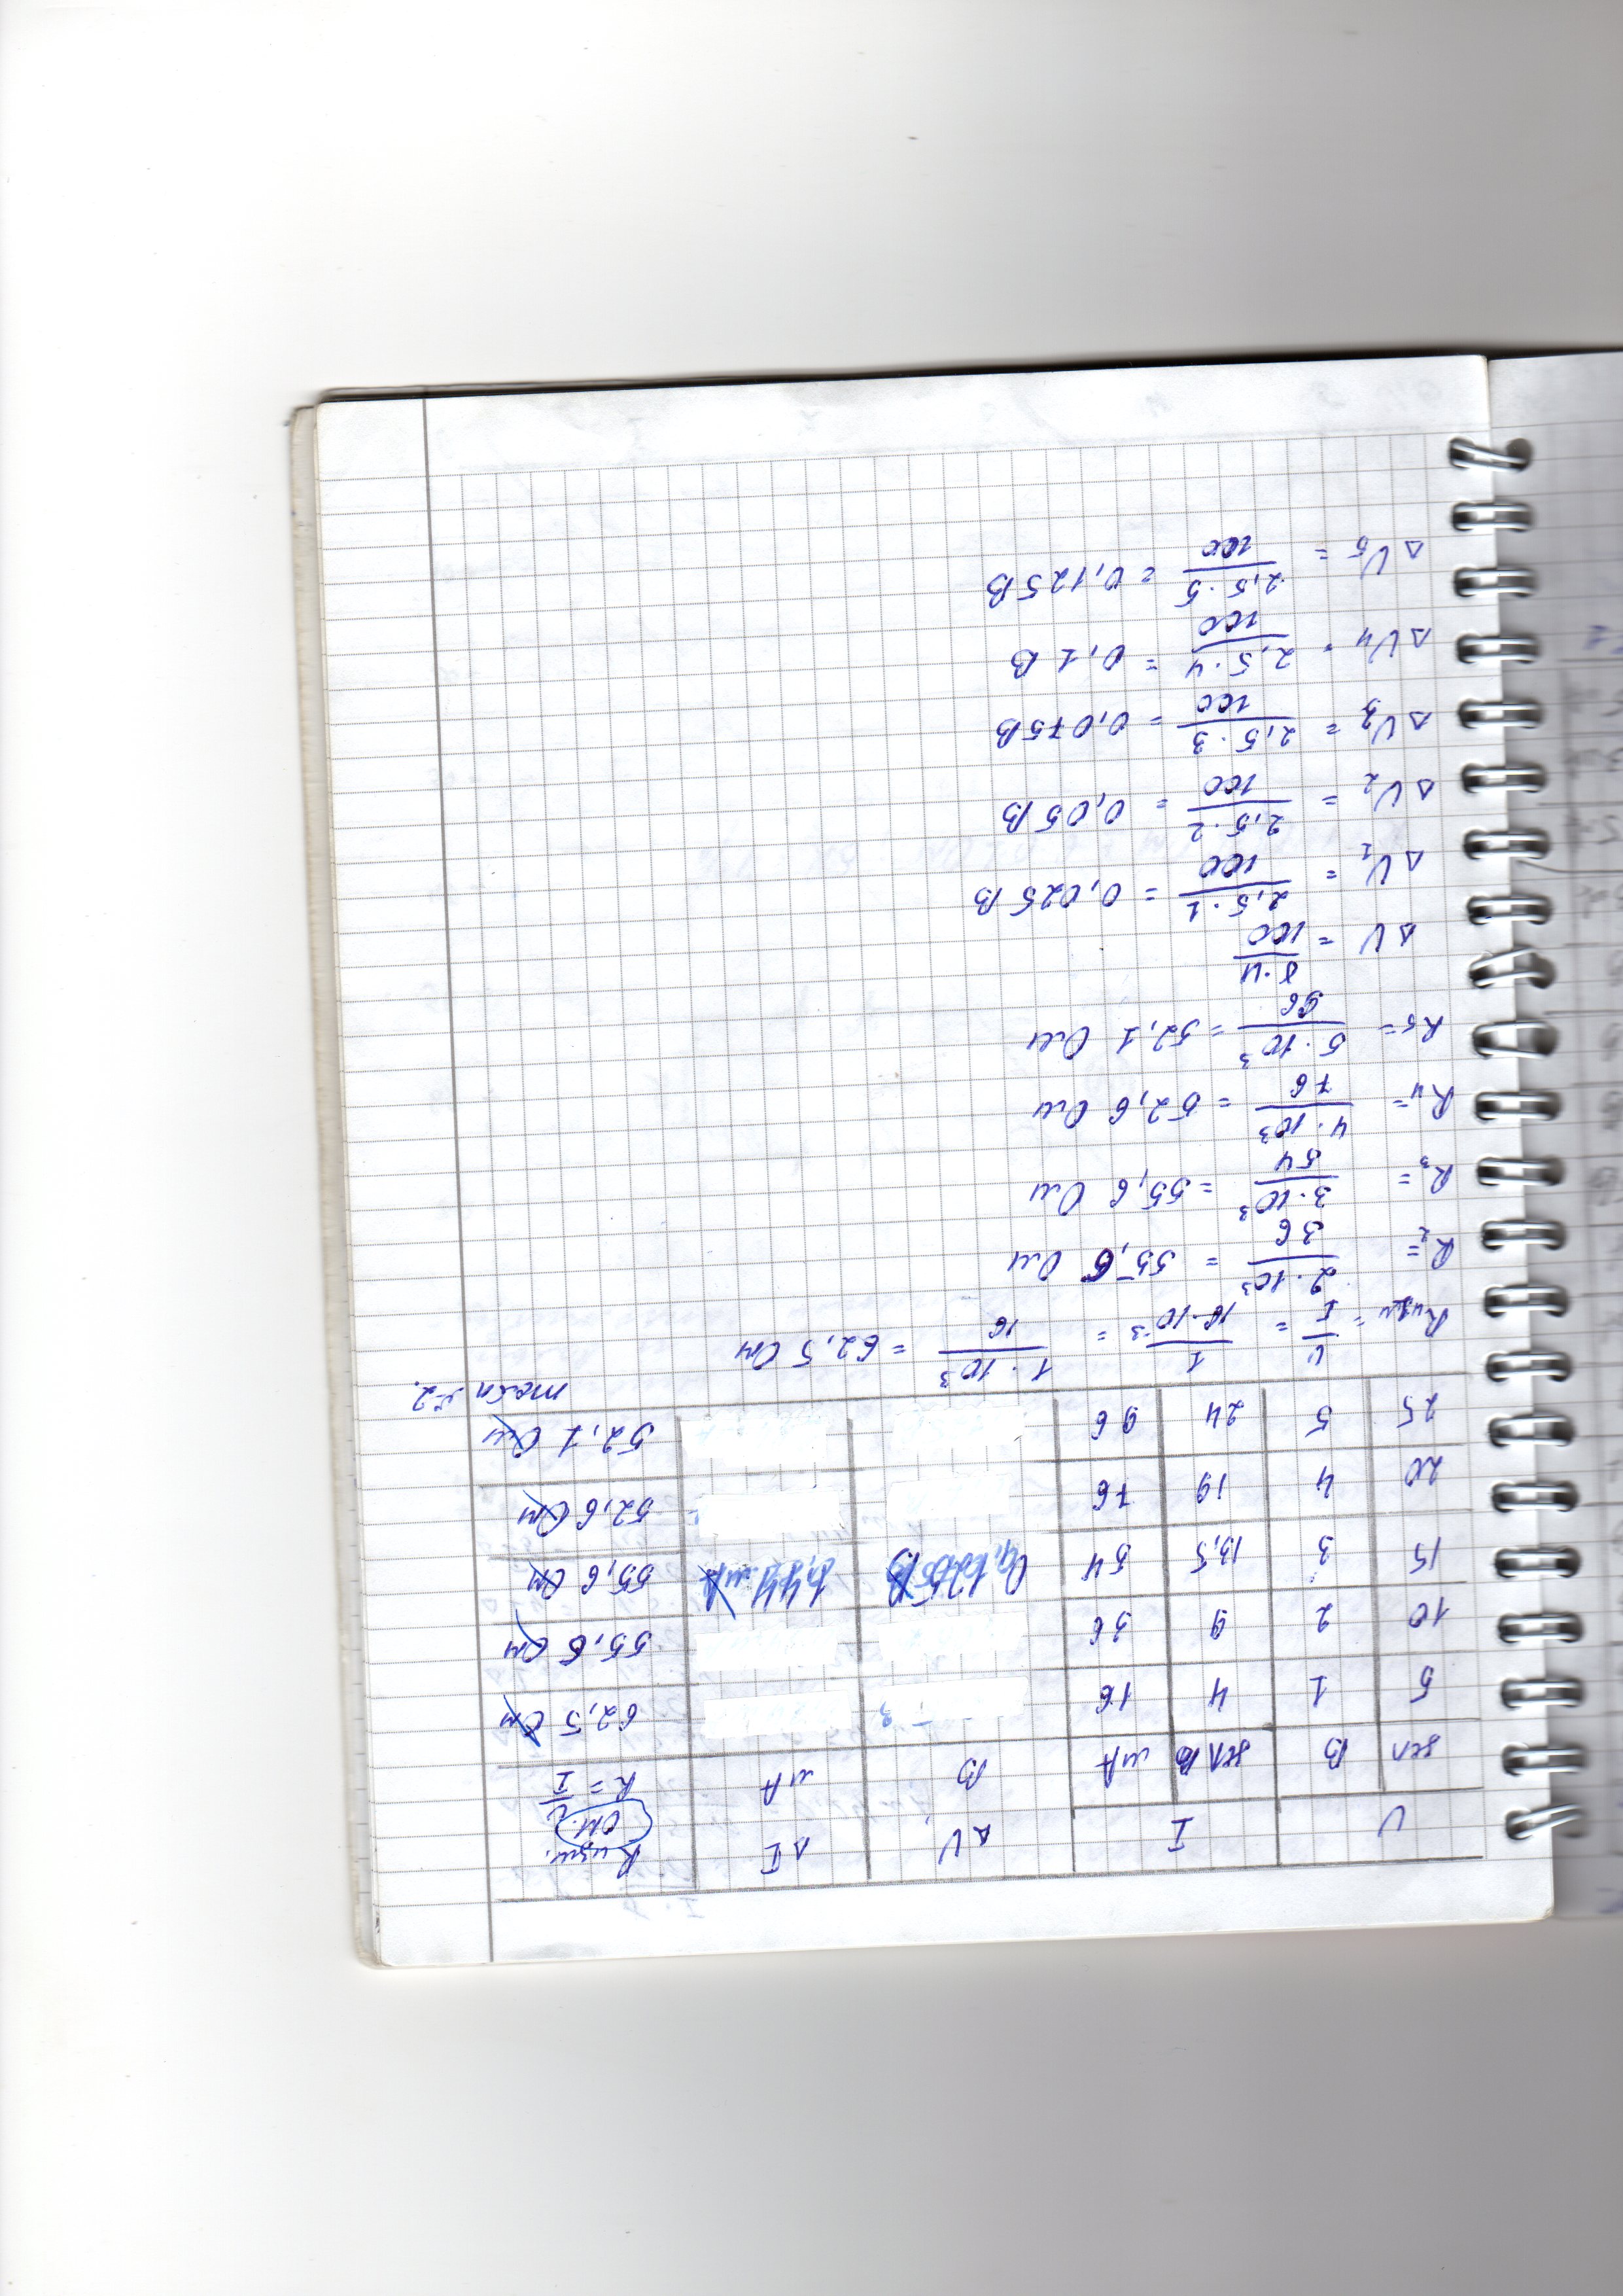 U I ΔU, ΔI Rизм.
Ом.
В мА R = U/I
кл В кл мА
5 1 4 16 62,5 Ом
10 2 9 36 55,6 Ом
15 3 13,5 54 0,125 В 1,44 мА 55,6 Ом
20 4 19 76 52,6 Ом
25 5 24 96 52,1 Ом
табл №2.
Rизм = U/I = 1/(16·10⁻³) = (1·10³)/16 = 62,5 Ом
R₂ = (2·10³)/36 = 55,6 Ом
R₃ = (3·10³)/54 = 55,6 Ом
R₄ = (4·10³)/76 = 52,6 Ом
R₅ = (5·10³)/96 = 52,1 Ом
ΔU = (γ·U)/100
ΔU₁ = (2,5·1)/100 = 0,025 В
ΔU₂ = (2,5·2)/100 = 0,05 В
ΔU₃ = (2,5·3)/100 = 0,075 В
ΔU₄ = (2,5·4)/100 = 0,1 В
ΔU₅ = (2,5·5)/100 = 0,125 В